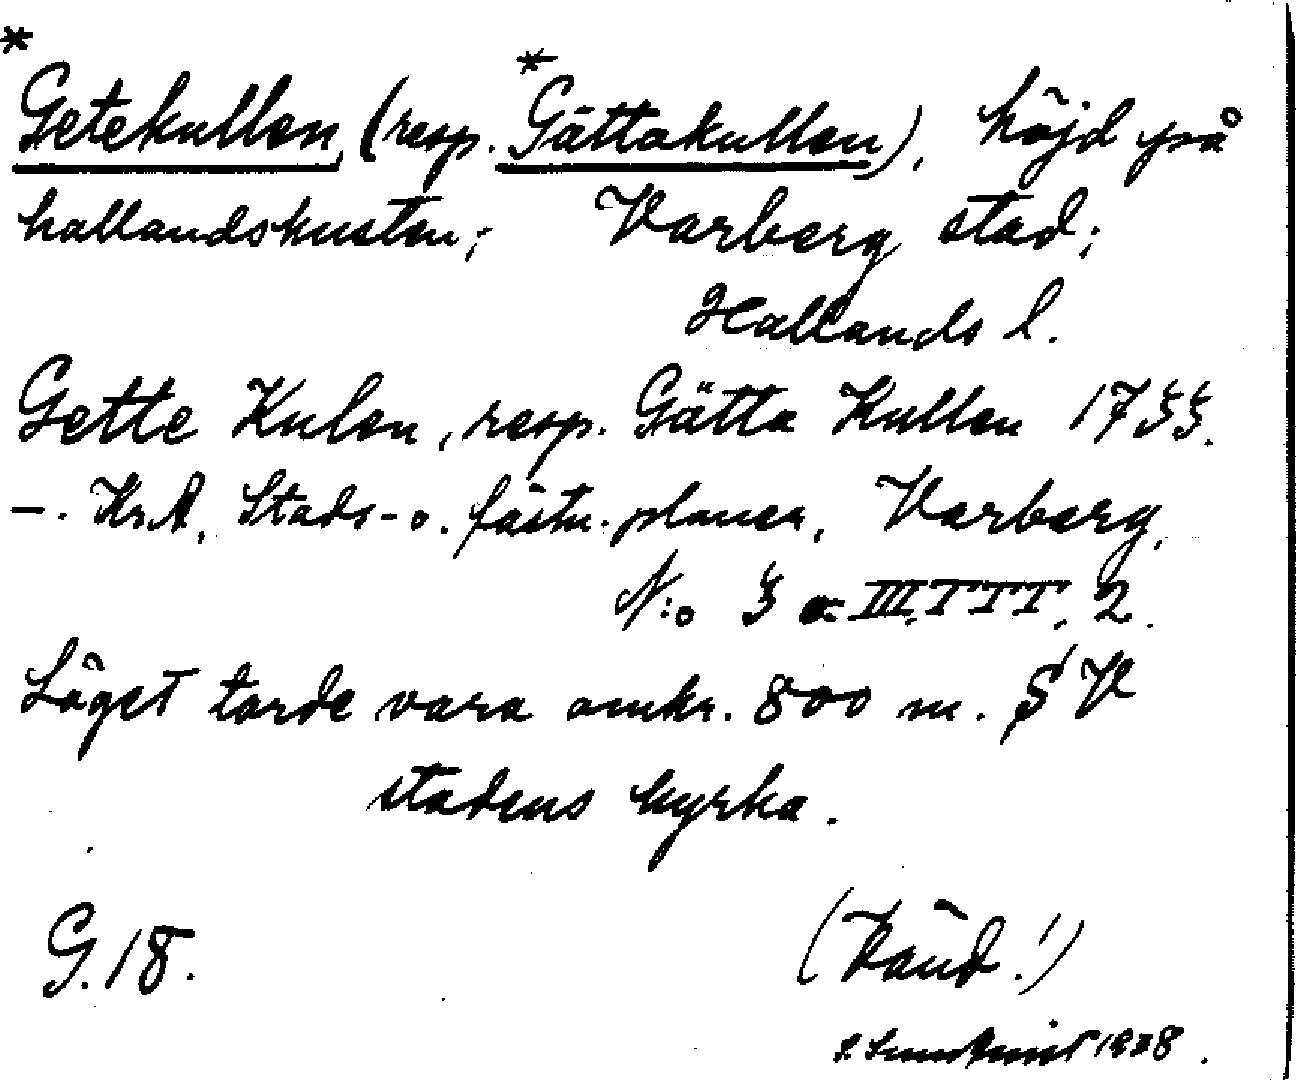 *Getekullen, (resp. *Gättakullen), höjd på
hallandskusten; Varberg stad;
Hallands l.
Gette Kulen, resp. Gätta Kullen 1733.
–. Kr.A. Stads- o. fästn. planer, Varberg,
N:o 3 III, 2.
Läget torde vara omkr. 800 m. S V
stadens kyrka.
G. 18.
(Vänd!)